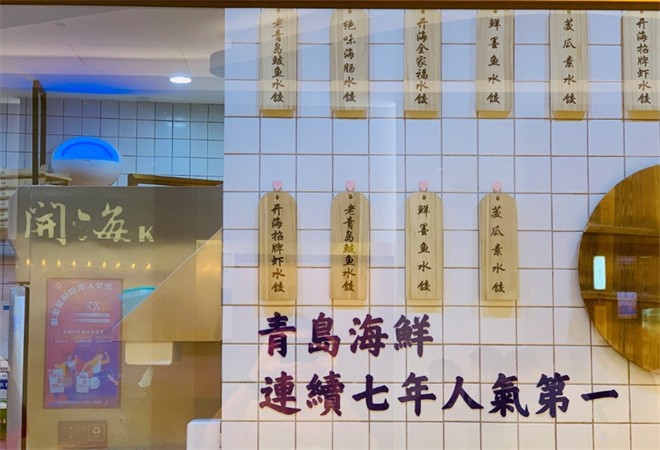 老青岛鲅鱼水饺
绝味海肠水饺
开海全家福水饺
鲜墨鱼水饺
茭瓜素水饺
开海招牌虾水饺
開海K
开海招牌虾水饺
老青岛鲅鱼水饺
鲜墨鱼水饺
茭瓜素水饺
青島海鮮
連續七年人氣第一